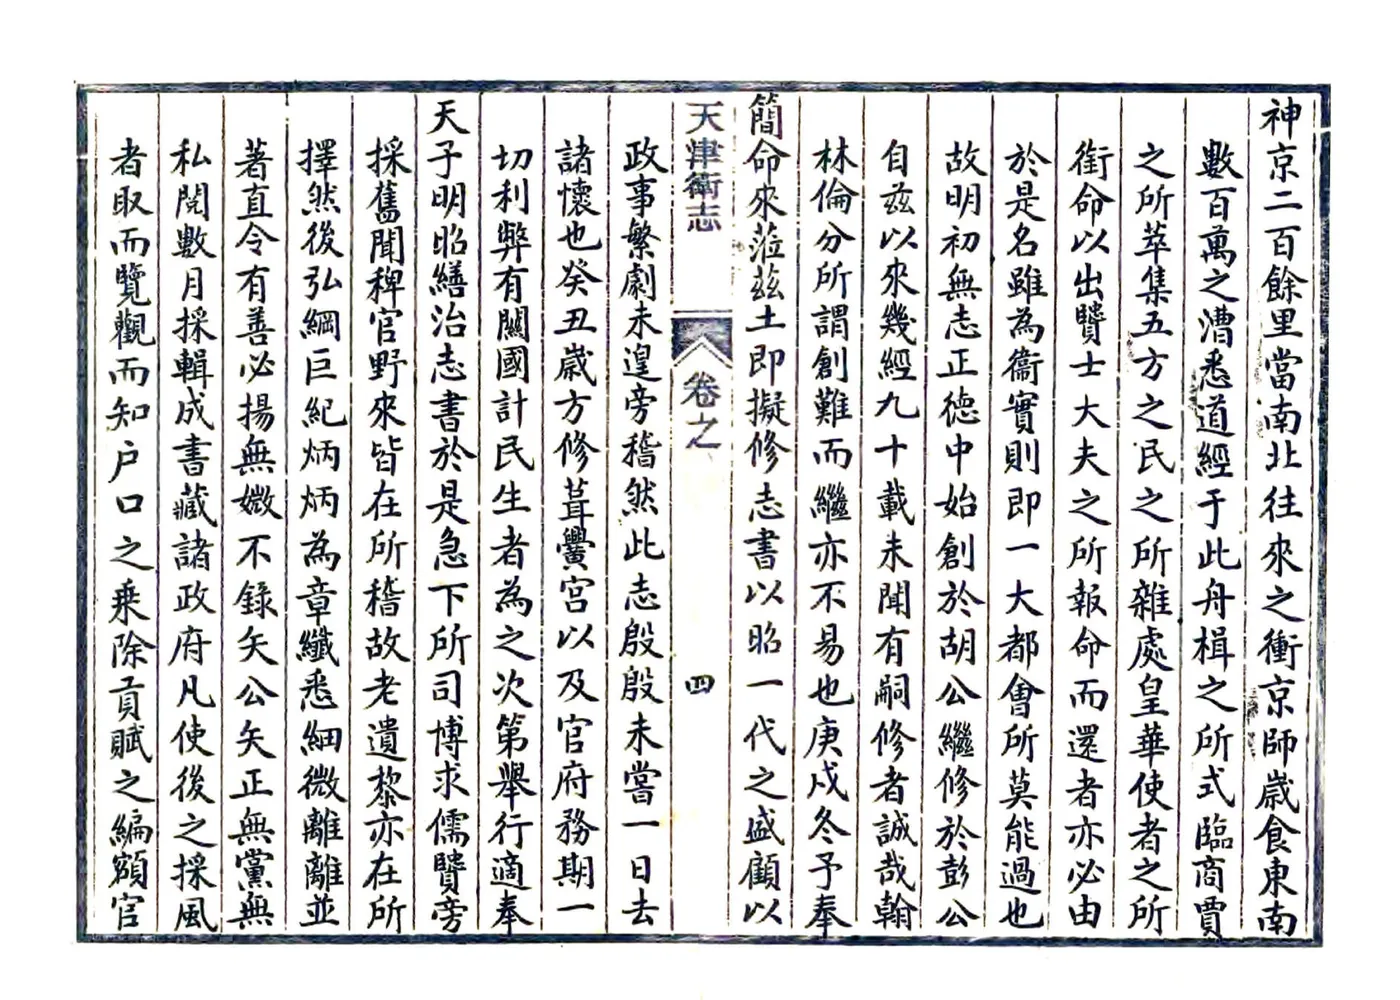 神京二百餘里當南北往來之衝京師歲食東南
數百萬之漕悉道經于此舟楫之所式臨商賈
之所萃集五方之民之所雜處皇華使者之所
銜命以出贒士大夫之所報命而還者亦必由
於是名雖為衞實則即一大都會所莫能過也
故明初無志正德中始創於胡公繼修於彭公
自茲以來幾經九十載未聞有嗣修者誠哉翰
林倫分所謂創難而繼亦不易也庚戍冬予奉
簡命來蒞茲土即擬修志書以昭一代之盛顧以
天津衛志
卷之
四
政事繁劇未遑旁稽然此志殷殷未嘗一日去
諸懷也癸丑歲方修葺黌宮以及官府務期一
切利弊有關國計民生者為之次第舉行適奉
天子明昭繕治志書於是急下所司博求儒贒旁
採舊聞稗官野來皆在所稽故老遺黎亦在所
擇然後弘綱巨紀炳炳為章纖悉細微離離並
著直令有善必揚無媺不錄矣公矣正無黨無
私閱數月採輯成書藏諸政府凡使後之採風
者取而覽觀而知户口之乗除貢賦之編額官